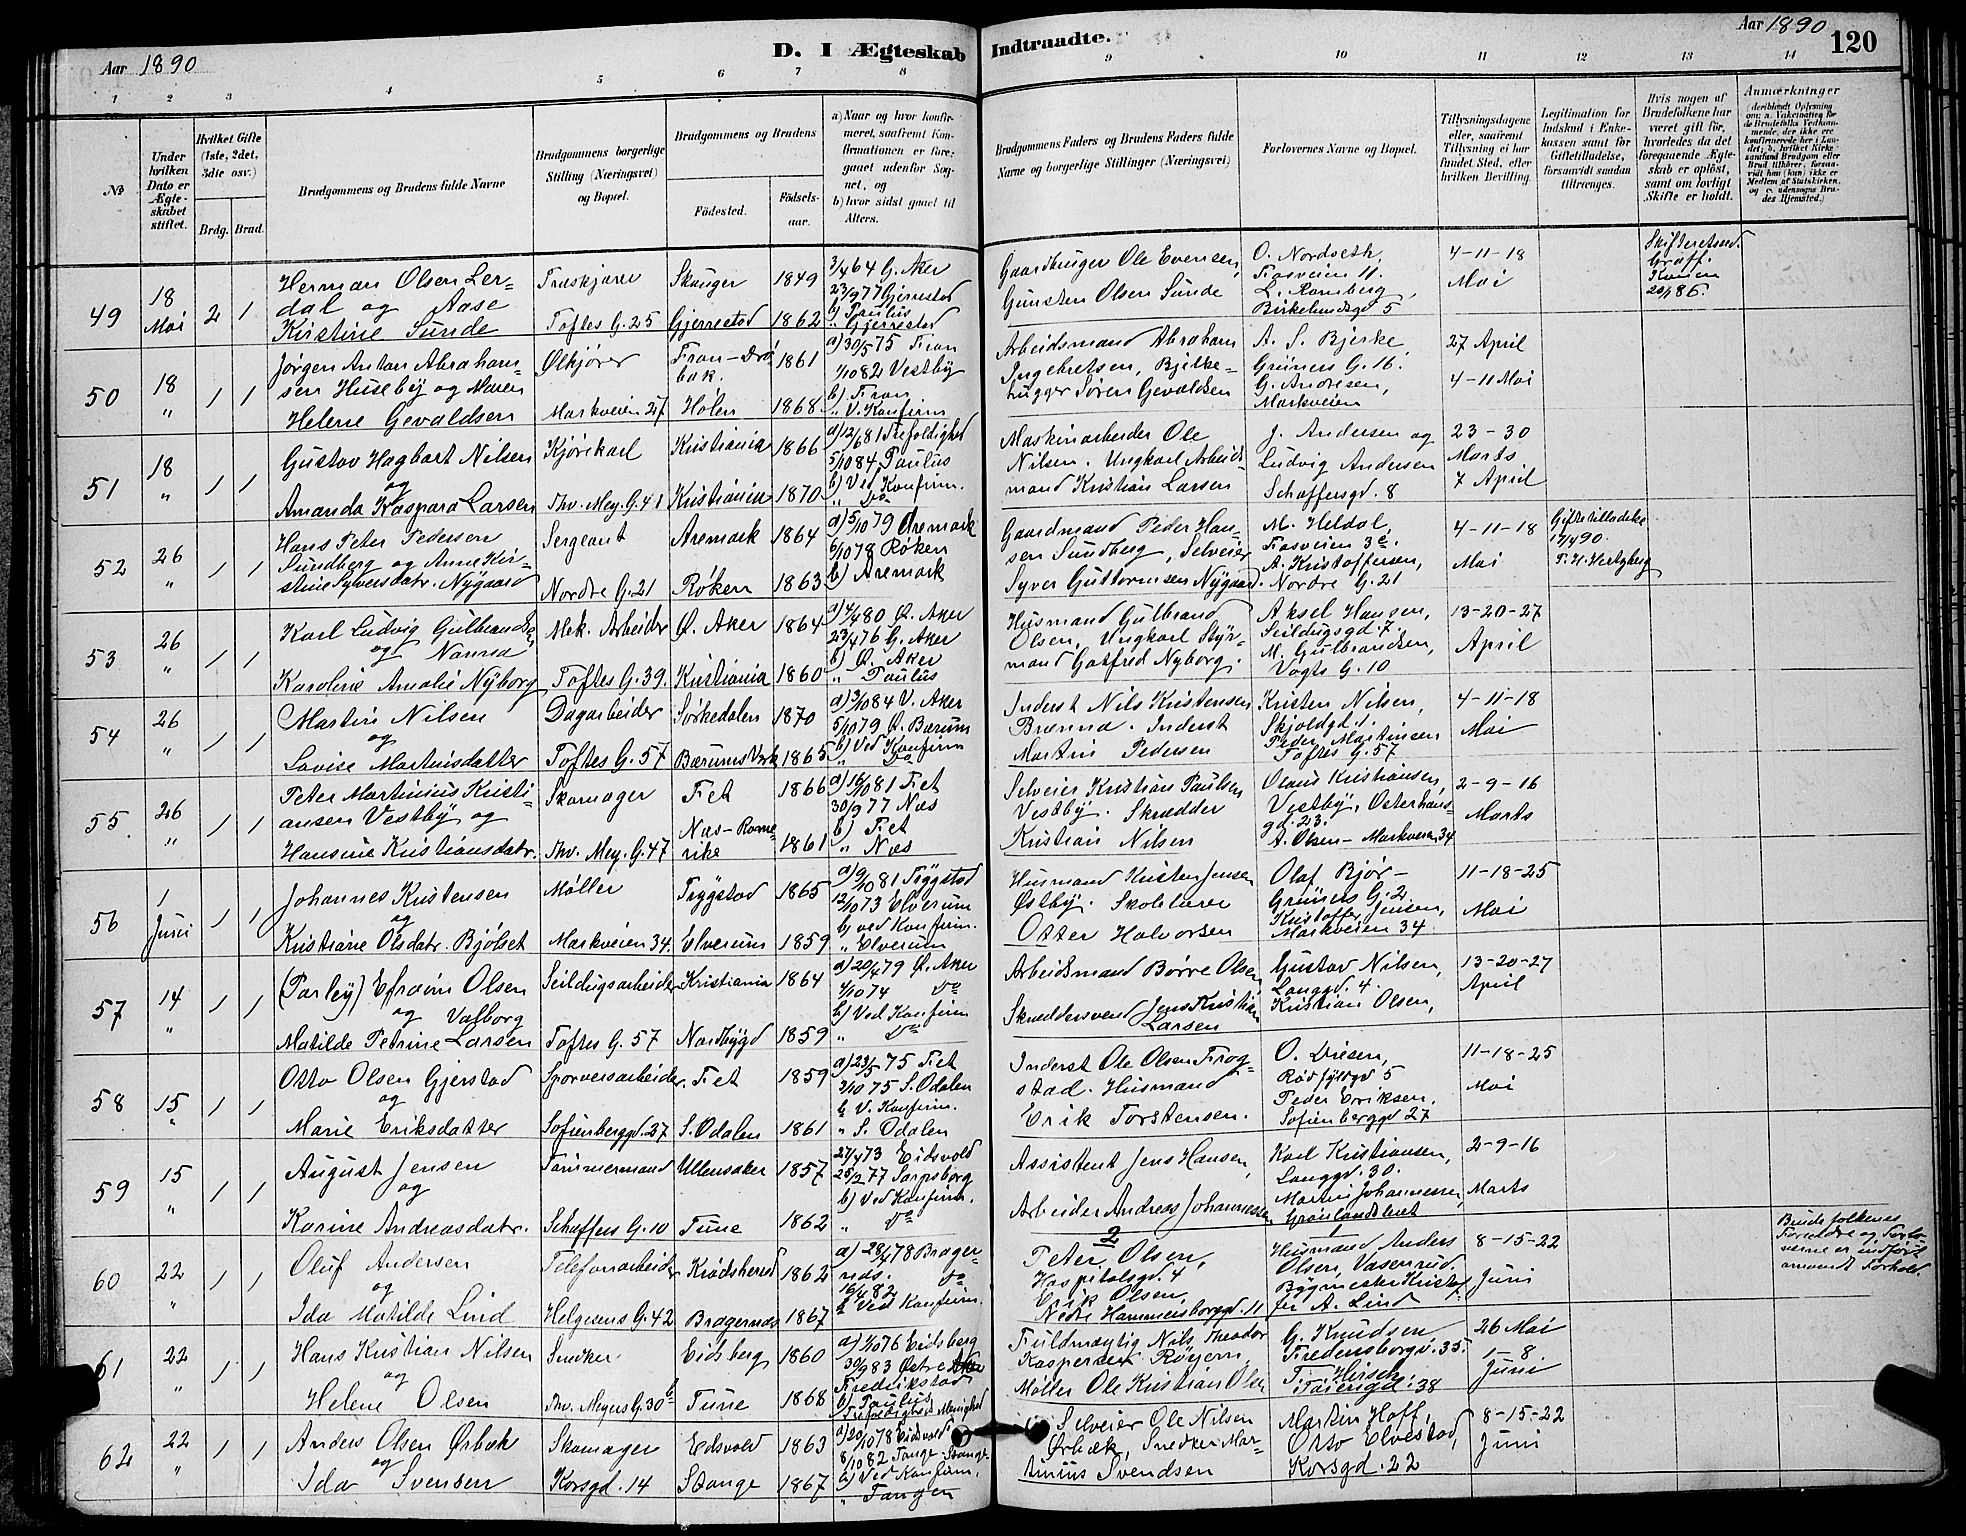 Aar 1890
D. I Ægteskab Indtraadte.
Aar 1890
120
1 2 3 4 5 6 7 8 9 10 11 12 13 14
No
Under hvilken Dato er Ægteskabet stiftet.
Hvilket Gifte (1ste, 2det, 3die osv.)
Brdg. Brud.
Brudgommens og Brudens fulde Navne
Brudgommens borgerlige Stilling (Næringsvei) og Bopæl.
Brudgommens og Brudens
Födested.
Födsels-aar.
a) Naar og hvor konfirmeret, saafremt Konfirmationen er foregaaet udenför Sognet, og
b) hvor sidst gaaet til Alters.
Brudgommens Faders og Brudens Faders fulde Navne og borgerlige Stillinger (Næringsvei)
Forlovernes Navne og Bopæl.
Tillysningsdagene eller, saafremt Tillysning ei har fundet Sted, efter hvilken Bevilling.
Legitimation for Indskud i Enkekassen samt for Giftetilladelse, forsaavidt saadan tiltrænges.
Hvis nogen af Brudefolkene har været gift för, hvorledes da det foregaaende Ægteskab er oplöst, samt om lovligt Skifte er holdt.
Anmærkninger
49
18 Mai
2 1
Herman Olsen Ler=
dal og Aase
Kirstine Sunde
Træskjærer
Toftes G. 25
Skauger
Gjerrestad
1849
1862
3/4 64 G. Aker
23/9 77 Gjerrestad
b) Paulus
" Gjerrestad
Gaardbruger Ole Evensen,
Gunsten Olsen Sunde
O. Nordseth,
Fosveien 11.
L. Romberg,
Birkelundsgd 5
4-11-18
Mai
Skifteretsud.
Graff.
50
18 "
1 1
Jörgen Anton Abraham-
sen Huseby og Maren
Helene Gevaldsen
Ølkjörer
Markveien 27
Fron-Drö
bak.
Hölen
1861
1868
a) 30/5 75 Fron
1/10 82 Vestby
b) Fron
" V. Konfirm
Arbeidsmand Abraham
Ingebretsen, Bjelke-
hugger Sören Gevaldsen
A. S. Bjerke,
Grüners G. 16.
G. Andresen,
Markveien
27 April
4-11 Mai
51
18 "
1 1
Gustav Hagbart Nilsen
og
Amanda Kaspara Larsen
Kjörekarl
Thv. Mey. G. 41
Kristiania
Kristiania
1866
1870
a) 12/6 81 Trefoldighed
5/10 84 Paulus
b) Ved Konfirm.
" Do
Maskinarbeider Ole
Nilsen. Ungkarl Arbeids-
mand Kristian Larsen
J. Andersen og
Ludvig Andersen
Schøffersgd. 8
23-30
Marts
7 April
52
26 "
1 1
Hans Peter Pedersen
Sundberg og Anne Kir-
stine Syversdatr. Nygaard
Sergeant
Nordre G. 21
Aremark
Röken
1864
1863
a) 5/10 79 Aremark
6/10 78 Röken
b) Aremark
Gaardmand Peder Han-
sen Sundberg, Selveier
Syver Guttormsen Nygaard.
M. Heldal,
Fosveien 3e.
A. Kristoffersen,
Nordre G. 21
4-11-18
Mai
Giftetilladelse
17/4 90.
F. H. Hertzberg
53
26 "
1 1
Karl Ludvig Gulbrandsen
og Nanna
Karoline Amalie Nyborg
Mek. Arbeider
Toftes G. 39.
Ø. Aker
Kristiania
1864
1860
a) 4/4 80 Ø. Aker
23/4 76 G. Aker
b) Ø. Aker
" Paulus
Husmand Gulbrand
Olsen, Ungkarl Styr-
mand Gotfred Nyborg.
Aksel Hansen,
Seildugsgd. 7.
M. Gulbrandsen,
Vogts G. 10
13-20-27
April
54
26 "
1 1
Martin Nilsen
og
Lovise Martinsdatter
Dagarbeider
Toftes G. 57
Sörkedalen
Bærums Verk
1870
1865
a) 3/10 84 V. Aker
5/10 79 Ø. Bærum
b) Ved Konfirm
" Do
Inderst Nils Kristensen
Brenna. Inderst
Martin Pedersen
Kristen Nilsen,
Skjoldgd.
Peder Martinsen
Toftes G. 57
4-11-18
Mai
55
26 "
1 1
Peter Martinius Kristi-
ansen Vestby og
Hansine Kristiansdatr.
Skomager
Thv. Mey. G. 47
Fet
Næs-Rome-
rike
1866
1861
a) 16/10 81 Fet
30/9 77 Næs
b) Fet
" Næs
Selveier Kristian Paulsen
Vestby. Skrædder
Kristian Nilsen
Olaus Kristiansen,
Vestby, Osterhaus-
gd. 23.
A. Olsen-Markveien 34
2-9-16
Marts
56
1 Juni
1 1
Johannes Kristensen
og
Kristiane Olsdatr. Bjölset
Møller
Markveien 34.
Trygstad
Elverum
1865
1859
a) 9/10 81 Tryggstad
12/10 73 Elverum
b) ved Konfirm.
" Elverum
Husmand Kristen Jensen
Østby. Skolelærer
Otter Halvorsen
Olaf Bjør-
Grüners G. 2
Kristoffer Jensen,
Markveien 34
11-18-25
Mai
57
14 "
1 1
(Parley) Efraim Olsen
og Valborg
Matilde Petrine Larsen
Seildugsarbeider
Toftes G. 57
Kristiania
Nordbygd
1864
1859
a) 20/4 79 Ø. Aker
4/10 74 Do
b) Ved Konfirm
" Do
Arbeidsmand Börre Olsen
Skræddersvend Jens Kristian
Larsen
Gustav Nilsen,
Langgd. 4.
Kristian Olsen,
13-20-27
April
58
15 "
1 1
Otto Olsen Gjerstad
og
Marie Eriksdatter
Sporveisarbeider.
Sofienberggd. 27
Fet
S. Odalen
1859
1861
a) 23/5 75 Fet
3/10 75 S. Odalen
b V. Konfirm.
" S. Odalen
Inderst Ole Olsen Frog-
stad. Husmand
Erik Torstensen.
O. Diesen,
Rødfyldgd 5
Peder Eriksen.
Sofienberggd 27
11-18-25
Mai
59
15 "
1 1
August Jensen
og
Karine Andreasdatr.
Tømmermand
Schøffers G. 10
Ullensaker
Tune
1857
1862
27/4 73 Eidsvold
25/2 77 Sarpsborg
b) Ved Konfirm.
" Do
Assistent Jens Hansen,
Arbeider Andreas Johannessen
Karl Kristiansen,
Langgd. 30.
Martin Johannessen,
Grønlandsleret
2-9-16
Marts
60
22 "
1 1
Oluf Andersen
og
Ida Matilde Lind
Telefonarbeider
Helgesens G. 42
Krødsherred
Bragernæs
1862
1867
a) 28/4 78 Brager-
næs. Do
16/4 82
b Ved Konfirm.
2
Peter Olsen,
Hospitalsgd. 4
Erik Olsen
Nedre Hammersborggd. 11
Husmand Anders
Olsen Vasenrud.
Bygmester Kristof-
fer A. Lind
8-15-22
Juni
Brudefolkenes
Forældre og Forlo-
verne er indført
omvendt Forhold.
61
22 "
1 1
Hans Kristian Nilsen
og
Helene Olsen
Snedker
Thv. Meyers G. 30b
Eidsberg
Tune
1860
1868
a) 1/10 76 Eidsberg
30/9 83 Østre
Fredrikstad
b) Paulus
" Trefoldigheds Menighed
Fuldmægtig Nils Theodor
Kaspersen Röyem.
Møller Ole Kristian Olsen
G. Knudsen
Fredensborgvd. 35.
F. Hirsch
38
26 Mai
1-8
Juni
62
22 "
1 1
Anders Olsen Ørbæk
og
Ida Svensen
Skomager
Korsgd. 14
Edsvold
Stange
1863
1867
a) 20/10 78 Eidsvold
8/10 82 Tange-Stange
b) Ved Konfirm.
" Tangen
Selveier Ole Nilsen
Ørbæk, Snedker Mar-
tinius Svendsen
Martin Hoff,
Otto Elvestad,
Korsgd. 22
8-15-22
Juni